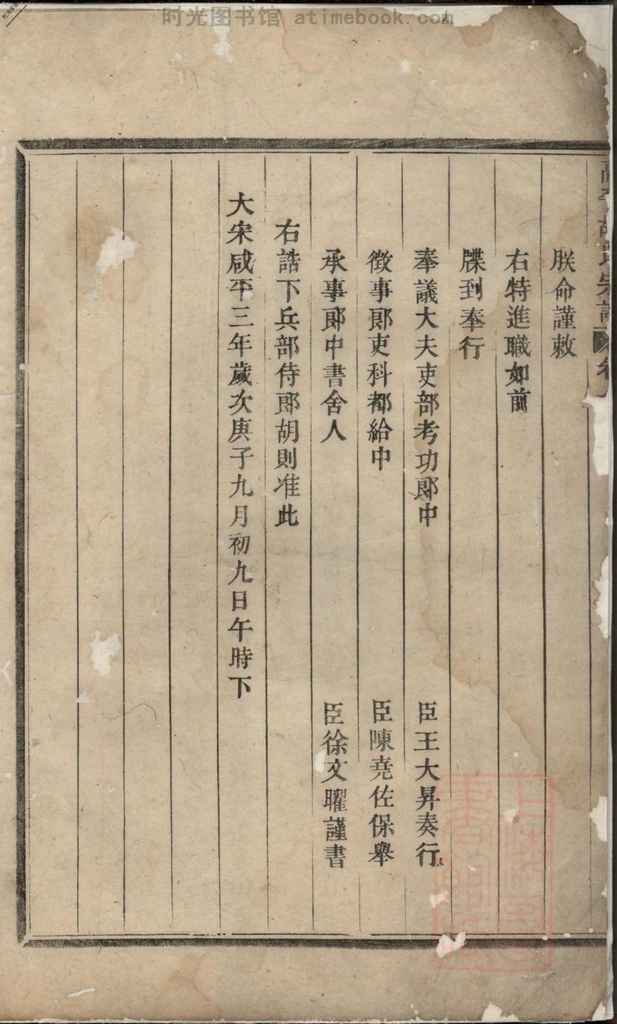 时光图书馆 atimebook.com
朕命謹敕
右特進職如前
牒到奉行
奉議大夫吏部考功郎中 臣王大昇奏行
徵事郎吏科都給中 臣陳堯佐保舉
承事郎中書舍人 臣徐文曜謹書
右誥下兵部侍郎胡則准此
大宋咸平三年歲次庚子九月初九日午時下